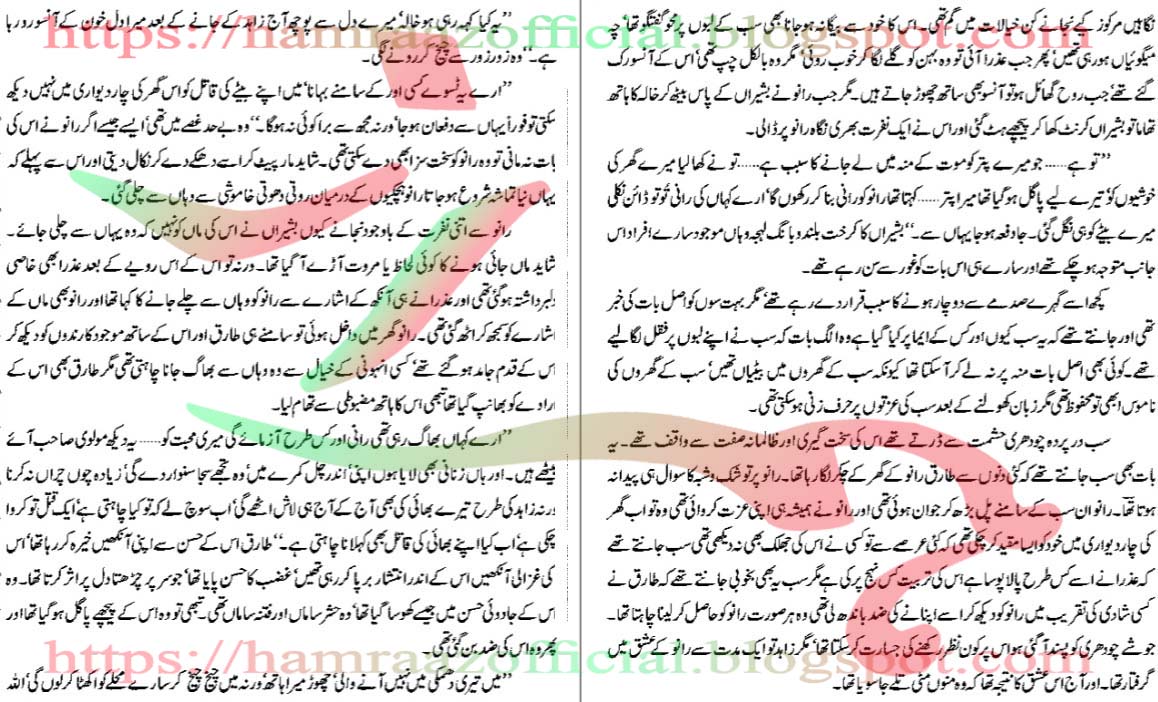 https://hamraazofficial.blogspot.com
نگاہیں مرکوز کیے نجانے کن خیالات میں گم تھی۔ اس کا خود سے بیگانہ ہو جانا بھی سب کے لبوں پر محو گفتگو تھا' چہ
میگوئیاں ہو رہی تھیں' پھر جب عذرا آئی تو وہ بہن کو گلے لگا کر خوب روئی' مگر وہ بالکل چپ تھی' اس کے آنسو رک
گئے تھے' جب روح گھائل ہو تو آنسو بھی ساتھ چھوڑ جاتے ہیں۔ مگر جب رانو نے بشیراں کے پاس بیٹھ کر خالہ کا ہاتھ
تھاما تو بشیراں کرنٹ کھا کر پیچھے ہٹ گئی اور اس نے ایک نفرت بھری نگاہ رانو پر ڈالی۔
"تو ہے...... جو میرے پتر کو موت کے منہ میں لے جانے کا سبب ہے...... تو نے کھا لیا میرے گھر کی
خوشیوں کو' تیرے لیے پاگل ہو گیا تھا میرا پتر...... کہتا تھا رانو کو رانی بنا کر رکھوں گا' ارے کہاں کی رانی تُو تو ڈائن نکلی
میرے بیٹے کو ہی نگل گئی۔ جا دفعہ ہو جا یہاں سے۔" بشیراں کا کرخت بلند و بانگ لہجہ وہاں موجود سارے افراد اس
جانب متوجہ ہو چکے تھے اور سارے ہی اس بات کو غور سے سن رہے تھے۔
کچھ اسے گہرے صدمے سے دوچار ہونے کا سبب قرار دے رہے تھے' مگر بہت سوں کو اصل بات کی خبر
تھی اور جانتے تھے کہ یہ سب کیوں اور کس کے ایما پر کیا گیا ہے وہ الگ بات کہ سب نے اپنے لبوں پر قفل لگا لیے
تھے۔ کوئی بھی اصل بات منہ پر نہ لے کر آ سکتا تھا کیونکہ سب کے گھروں میں بیٹیاں تھیں' سب کے گھروں کی
ناموس ابھی تو محفوظ تھی مگر زبان کھولنے کے بعد سب کی عزتوں پر حرف زنی ہو سکتی تھی۔
سب در پردہ چودھری حشمت سے ڈرتے تھے اس کی سخت گیری اور ظالمانہ صفت سے واقف تھے۔ یہ
بات بھی سب جانتے تھے کہ کئی دنوں سے طارق رانو کے گھر کے چکر لگا رہا تھا۔ رانو پر تو شک و شبہ کا سوال ہی پیدا نہ
ہوتا تھا۔ رانو ان سب کے سامنے پل بڑھ کر جوان ہوئی تھی اور رانو نے ہمیشہ ہی اپنی عزت کروائی تھی وہ تو اب گھر
کی چار دیواری میں خود کو ایسا مقید کر چکی تھی کہ کئی عرصے سے تو کسی نے اس کی جھلک بھی نہ دیکھی تھی سب جانتے تھے
کہ عذرا نے اسے کس طرح پالا پوسا ہے' اس کی تربیت کس نہج پر کی ہے مگر سب یہ بھی بخوبی جانتے تھے کہ طارق نے
کسی شادی کی تقریب میں رانو کو دیکھ کر اسے اپنانے کی ضد باندھ لی تھی وہ ہر صورت رانو کو حاصل کر لینا چاہتا تھا۔
جو شے چودھری کو پسند آ گئی ہو اس پر کون نظر رکھنے کی جسارت کر سکتا تھا' مگر زاہد تو ایک مدت سے رانو کے عشق میں
گرفتار تھا۔ اور آج اس عشق کا نتیجہ تھا کہ وہ منوں مٹی تلے جا سویا تھا۔
"یہ کیا کہہ رہی ہو خالہ' میرے دل سے پوچھ آج زاہد کے جانے کے بعد میرا دل خون کے آنسو رو رہا
ہے۔" وہ زور زور سے چیخ کر رونے لگی۔
"ارے یہ ٹسوے کسی اور کے سامنے بہانا' میں اپنے بیٹے کی قاتل کو اس گھر کی چار دیواری میں نہیں دیکھ
سکتی تو فوراً یہاں سے دفعان ہو جا' ورنہ مجھ سے برا کوئی نہ ہوگا۔" وہ بے حد غصے میں تھی' ایسے جیسے اگر رانو نے اس کی
بات نہ مانی تو وہ رانو کو سخت سزا بھی دے سکتی تھی۔ شاید مار پیٹ کر اسے دھکے دے کر نکال دیتی اور اس سے پہلے کہ
یہاں نیا تماشہ شروع ہو جاتا رانو ہچکیوں کے درمیان روتی دھوتی خاموشی سے وہاں سے چلی گئی۔
رانو سے اتنی نفرت کے باوجود نجانے کیوں بشیراں نے اس کی ماں کو نہیں کہ وہ یہاں سے چلی جائے۔
شاید ماں جائی ہونے کا کوئی لحاظ یا مروت آڑے آ گیا تھا۔ ورنہ تو اس کے اس رویے کے بعد عذرا بھی خاصی
دلبرداشتہ ہو گئی تھی اور عذرا نے ہی آنکھ کے اشارے سے رانو کو وہاں سے چلے جانے کا کہا تھا اور رانو بھی ماں کے
اشارے کو سمجھ کر اٹھ گئی تھی۔ رانو گھر میں داخل ہوئی تو سامنے ہی طارق اور اس کے ساتھ موجود کارندوں کو دیکھ کر
اس کے قدم جامد ہو گئے تھے' کسی انہونی کے خیال سے وہ وہاں سے بھاگ جانا چاہتی تھی مگر طارق بھی اس کے
ارادے کو بھانپ گیا تھا تبھی اس کا ہاتھ مضبوطی سے تھام لیا۔
"ارے کہاں بھاگ رہی تھی رانی اور کس طرح آزمائے گی میری محبت کو...... یہ دیکھ مولوی صاحب آئے
بیٹھے ہیں۔ اور ہاں زنانی بھی لایا ہوں اپنی' اندر چل کمرے میں' وہ تجھے سجا سنوار دے گی' زیادہ چوں چراں نہ کرنا
ورنہ زاہد کی طرح تیرے بھائی کی بھی آج کے آج ہی لاش اٹھے گی' اب سوچ لے کہ تو کیا چاہتی ہے' ایک قتل تو کروا
چکی ہے' اب کیا اپنے بھائی کی قاتل بھی کہلانا چاہتی ہے۔" طارق اس کے حسن سے اپنی آنکھیں خیرہ کر رہا تھا' اس
کی غزالی آنکھیں اس کے اندر انتشار برپا کر رہی تھیں' غضب کا حسن پایا تھا' جو سر پر چڑھتا دل پر اثر کرتا تھا۔ وہ
اس کے جادوئی حسن میں جیسے کھو سا گیا تھا' وہ حشر ساماں اور فتنہ ساماں تھی۔ تبھی تو وہ اس کے پیچھے پاگل ہو گیا تھا اور
پھر وہ اس کی ضد بن گئی تھی۔
"میں تیری دھمکی میں نہیں آنے والی' چھوڑ میرا ہاتھ' ورنہ میں چیخ چیخ کر سارے محلے کو اکٹھا کر لوں گی' اللہ
https://hamraazofficial.blogspot.com